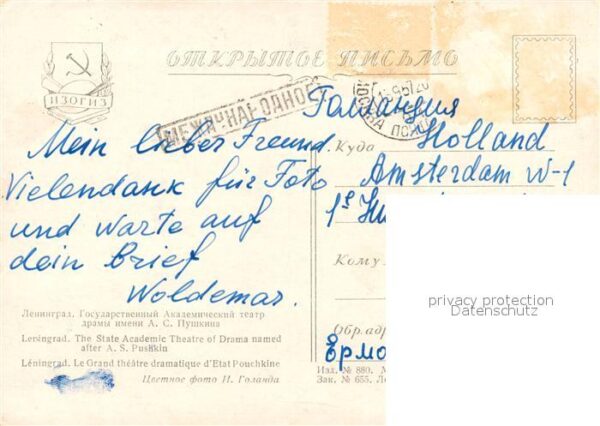 ОТКРЫТОЕ ПИСЬМО
ИЗОГИЗ
МЕЖДУНАРОДНОЕ
МОСКВА
Mein lieber Freund
Vielendank für Foto
und warte auf
dein Brief
Woldemar.
Голландия
Куда Holland
Amsterdam W-1
Кому
Обр. ад
Ермо
privacy protection
Datenschutz
Ленинград. Государственный Академический театр
драмы имени А. С. Пушкина
Leningrad. The State Academic Theatre of Drama named
after A. S. Pushkin
Léningrad. Le Grand théâtre dramatique d'Etat Pouchkine
Цветное фото И. Голанда
Изд. № 880. М
Зак. № 655. Л